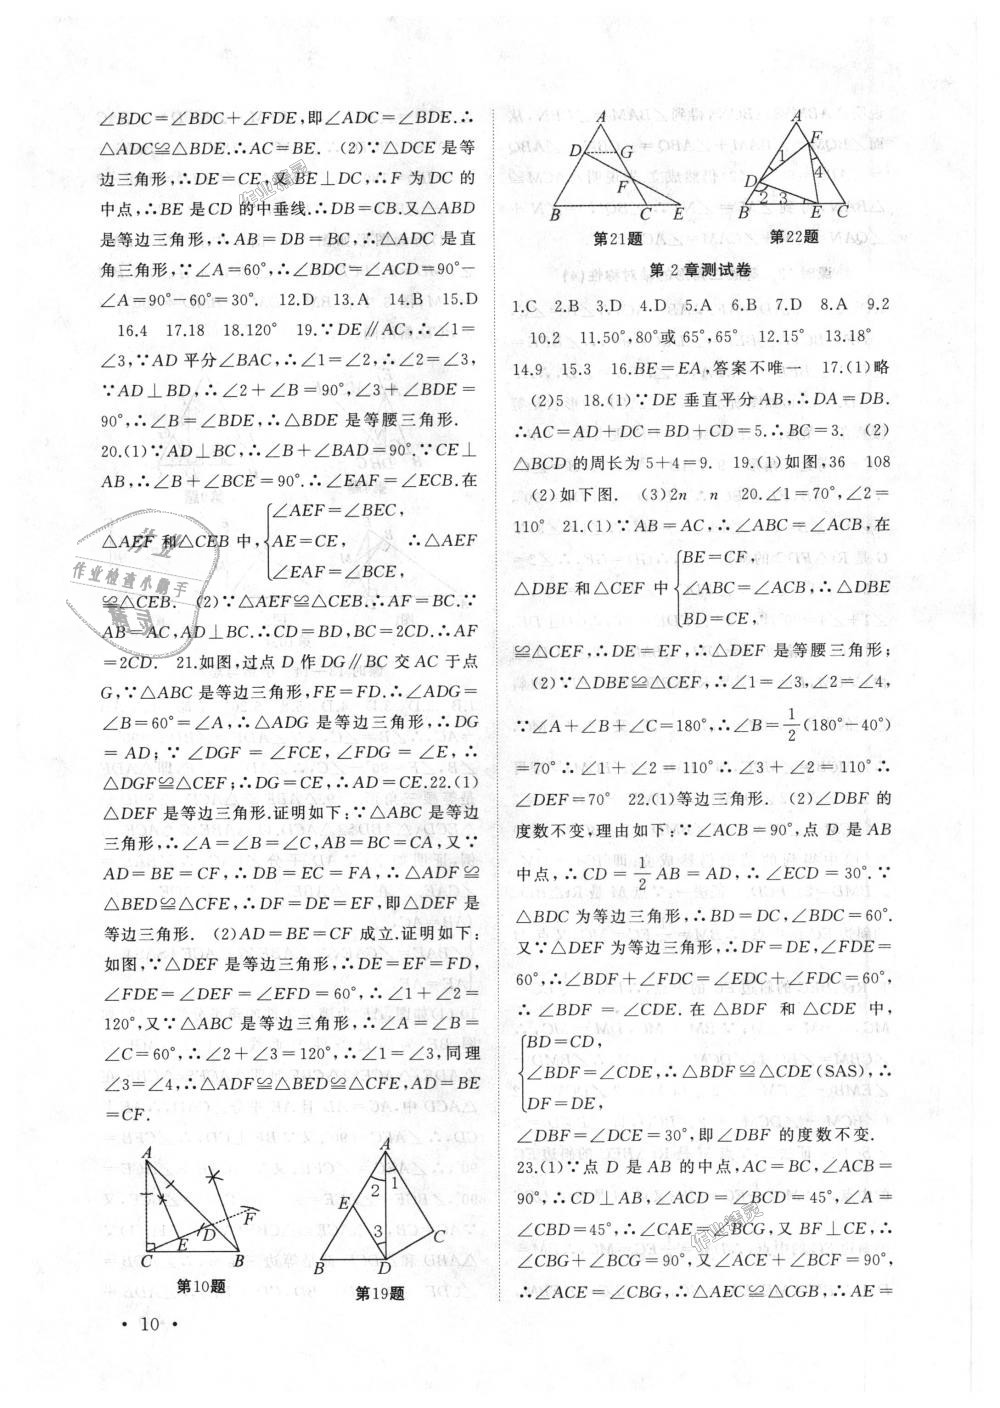 ∠BDC=∠BDC+∠FDE,即∠ADC=∠BDE.∴
△ADC≌△BDE.∴AC=BE. (2)∵△DCE是等
边三角形,∴DE=CE,又BE⊥DC,∴F为DC的
中点,∴BE是CD的中垂线.∴DB=CB.又△ABD
是等边三角形,∴AB=DB=BC,∴△ADC是直
角三角形,∵∠A=60°,∴∠BDC=∠ACD=90°-
∠A=90°-60°=30°. 12.D 13.A 14.B 15.D
16.4 17.18 18.120° 19.∵DE∥AC,∴∠1=
∠3,∵AD平分∠BAC,∴∠1=∠2,∴∠2=∠3,
∵AD⊥BD,∴∠2+∠B=90°,∠3+∠BDE=
90°,∴∠B=∠BDE,∴△BDE是等腰三角形.
20.(1)∵AD⊥BC,∴∠B+∠BAD=90°.∵CE⊥
AB,∴∠B+∠BCE=90°.∴∠EAF=∠ECB.在
∠AEF=∠BEC,
△AEF和△CEB中, AE=CE, ∴△AEF
∠EAF=∠BCE,
≌△CEB. (2)∵△AEF≌△CEB.∴AF=BC.∵
AB=AC,AD⊥BC.∴CD=BD,BC=2CD.∴AF
=2CD. 21.如图,过点D作DG∥BC交AC于点
G,∵△ABC是等边三角形,FE=FD.∴∠ADG=
∠B=60°=∠A,∴△ADG是等边三角形,∴DG
=AD;∵∠DGF=∠FCE,∠FDG=∠E,∴
△DGF≌△CEF;∴DG=CE,∴AD=CE.22.(1)
△DEF是等边三角形.证明如下:∵△ABC是等边
三角形,∴∠A=∠B=∠C,AB=BC=CA,又∵
AD=BE=CF,∴DB=EC=FA,∴△ADF≌
△BED≌△CFE,∴DF=DE=EF,即△DEF是
等边三角形. (2)AD=BE=CF成立.证明如下:
如图,∵△DEF是等边三角形,∴DE=EF=FD,
∠FDE=∠DEF=∠EFD=60°,∴∠1+∠2=
120°,又∵△ABC是等边三角形,∴∠A=∠B=
∠C=60°,∴∠2+∠3=120°,∴∠1=∠3,同理
∠3=∠4,∴△ADF≌△BED≌△CFE,AD=BE
=CF.
A
D
F
C E B
第10题
A
2 1
E
3
C
B D
第19题
• 10 •
A
D G
F
B C E
第21题
A
F
1
4
D
2 3
B E C
第22题
第2章测试卷
1.C 2.B 3.D 4.D 5.A 6.B 7.D 8.A 9.2
10.2 11.50°,80°或65°,65° 12.15° 13.18°
14.9 15.3 16.BE=EA,答案不唯一 17.(1)略
(2)5 18.(1)∵DE垂直平分AB,∴DA=DB.
∴AC=AD+DC=BD+CD=5.∴BC=3. (2)
△BCD的周长为5+4=9. 19.(1)如图,36 108
(2)如下图. (3)2n n 20.∠1=70°,∠2=
110° 21.(1)∵AB=AC,∴∠ABC=∠ACB,在
BE=CF,
△DBE和△CEF中 ∠ABC=∠ACB,∴△DBE
BD=CE,
≌△CEF,∴DE=EF,∴△DEF是等腰三角形;
(2)∵△DBE≌△CEF,∴∠1=∠3,∠2=∠4,
∵∠A+∠B+∠C=180°,∴∠B=1/2(180°-40°)
=70°∴∠1+∠2=110°∴∠3+∠2=110°∴
∠DEF=70° 22.(1)等边三角形. (2)∠DBF的
度数不变,理由如下:∵∠ACB=90°,点D是AB
中点,∴CD=1/2AB=AD,∴∠ECD=30°.∵
△BDC为等边三角形,∴BD=DC,∠BDC=60°.
又∵△DEF为等边三角形,∴DF=DE,∠FDE=
60°,∴∠BDF+∠FDC=∠EDC+∠FDC=60°,
∴∠BDF=∠CDE.在△BDF和△CDE中,
BD=CD,
∠BDF=∠CDE,∴△BDF≌△CDE(SAS),∴
DF=DE,
∠DBF=∠DCE=30°,即∠DBF的度数不变.
23.(1)∵点D是AB的中点,AC=BC,∠ACB=
90°,∴CD⊥AB,∠ACD=∠BCD=45°,∠A=
∠CBD=45°,∴∠CAE=∠BCG,又BF⊥CE,∴
∠CBG+∠BCG=90°,又∠ACE+∠BCF=90°,
∴∠ACE=∠CBG,∴△AEC≌△CGB,∴AE=
作业精灵
作业
作业检查小鹏手
精灵
作业精灵